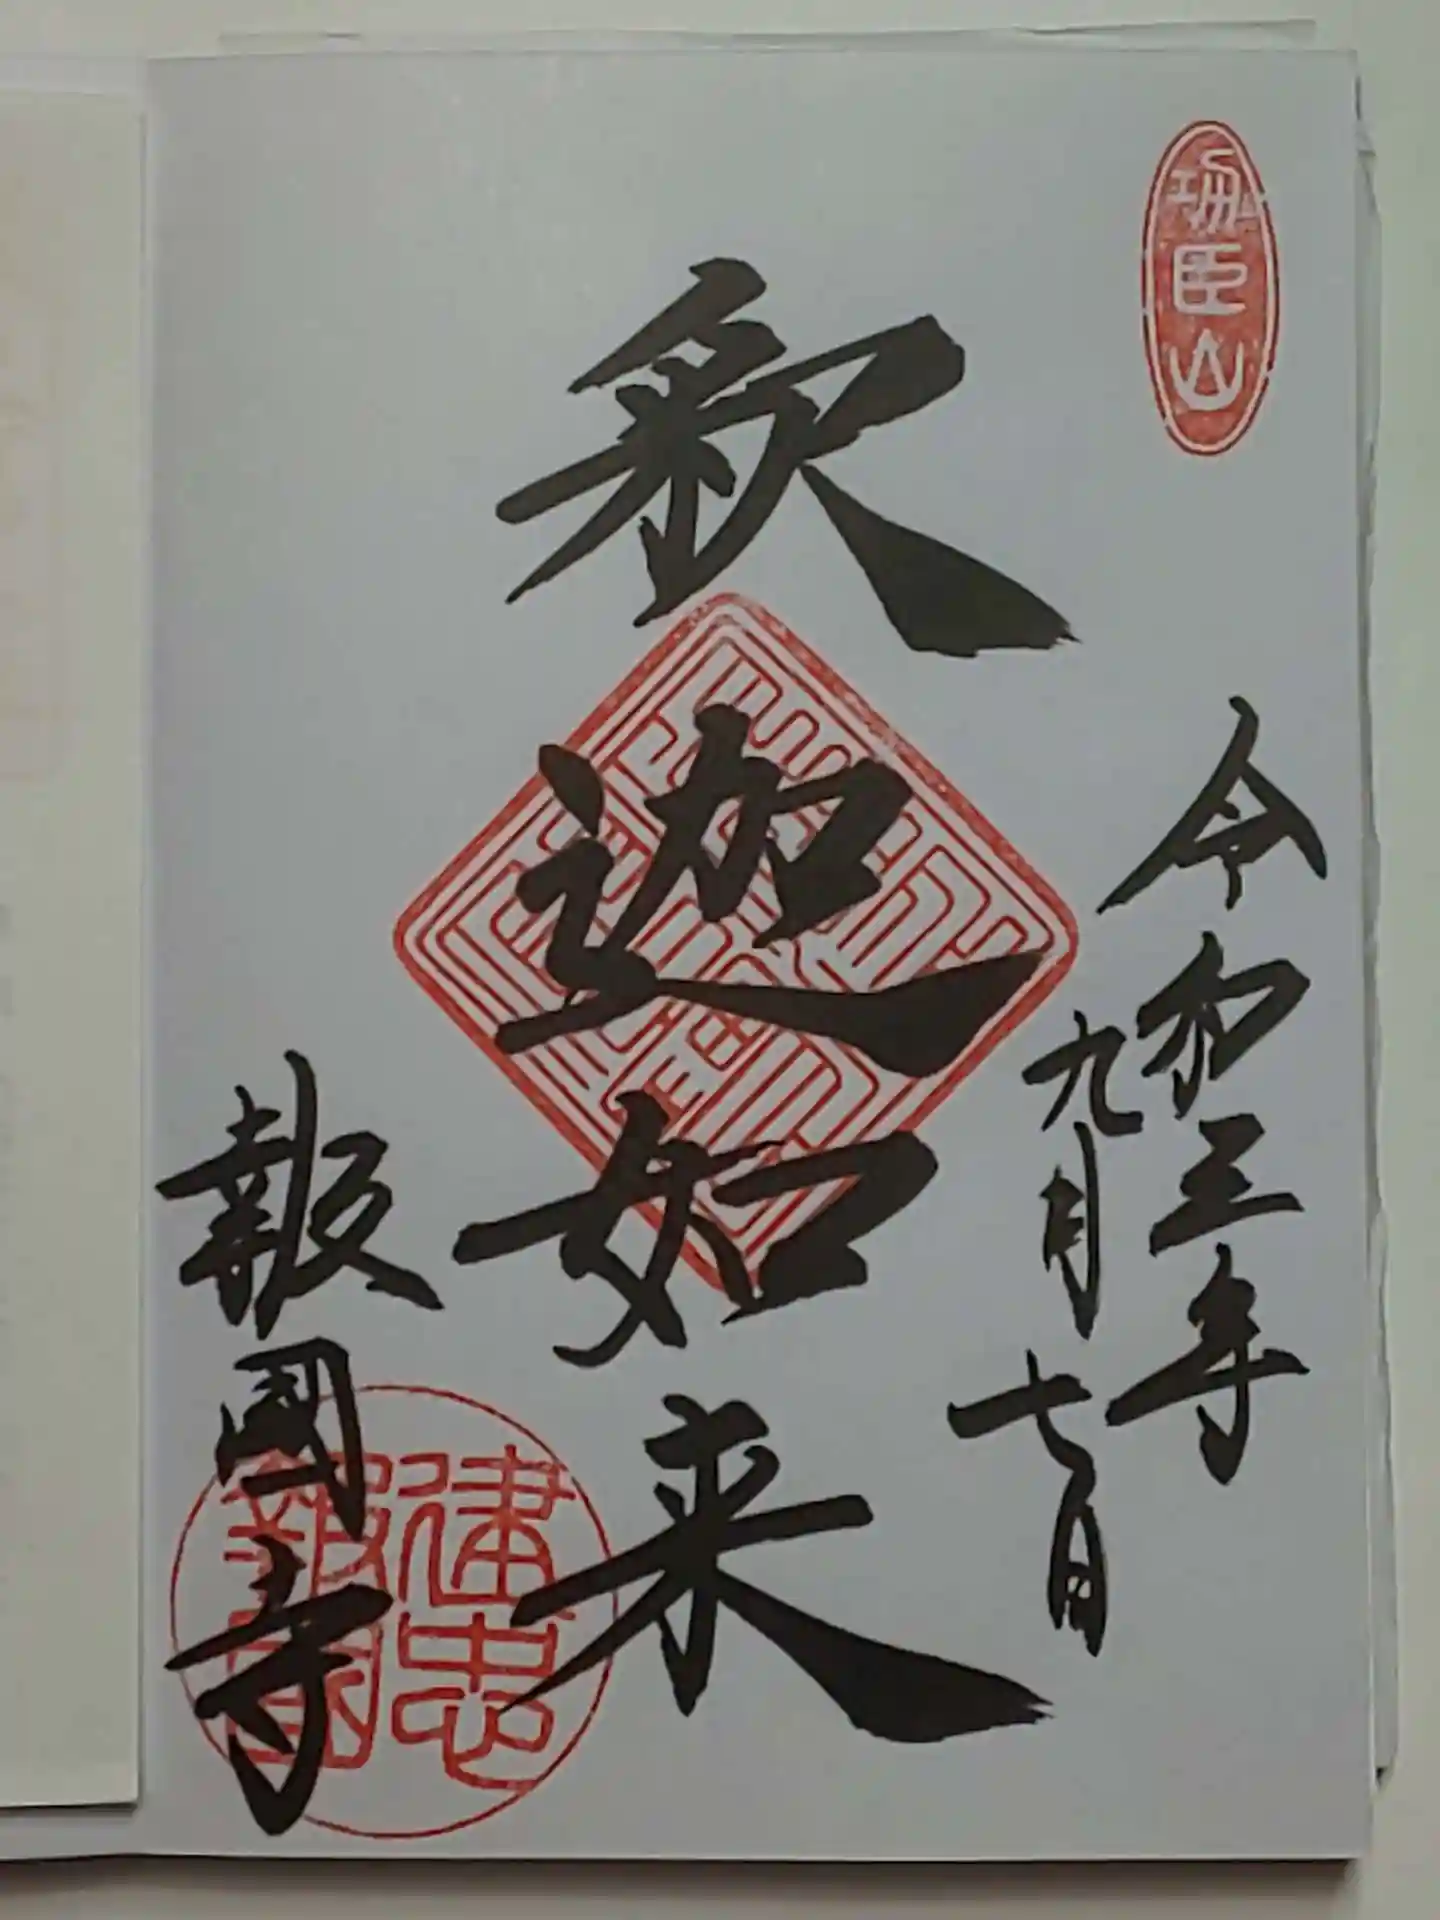 功臣山
令和三年
九月七日
釈迦如来
報國寺
建忠
報國